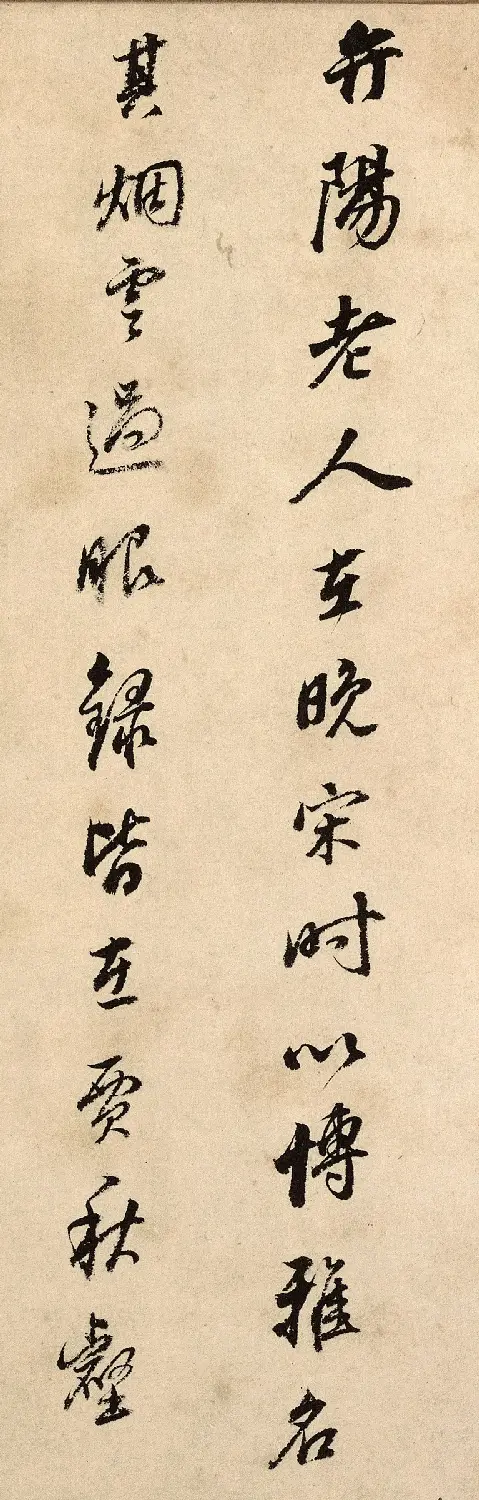 弁陽老人在晚宋时以博雅名
其烟雲過眼録皆在賈秋壑